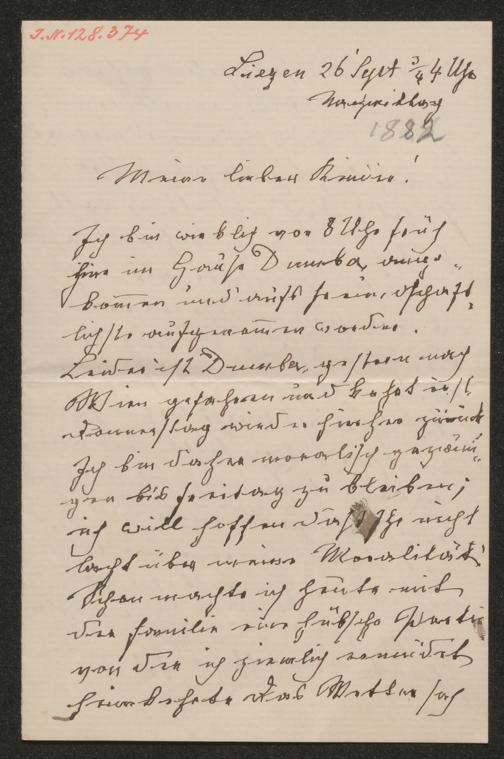 J.N. 128.374
Liezen 26 Sept 3/4 4 Uhr
Nachmittag
1882
Meine lieben Kinder!
Ich bin wirklich vor 8 Uhr früh
hier im Hause Dumba ange-
kommen und aufs freundschaft-
lichste aufgenommen worden.
Leider ist Dumba gestern nach
Wien gefahren und kehrt erst
Donnerstag wieder hierher zurück
Ich bin daher moralisch gezwun-
gen bis Freitag zu bleiben;
ich will hoffen daß Ihr nicht
lacht über meine Moralität
Schon machte ich heute mit
der Familie eine hübsche Partie
von der ich ziemlich ermüdet
heimkehrte das Wetter